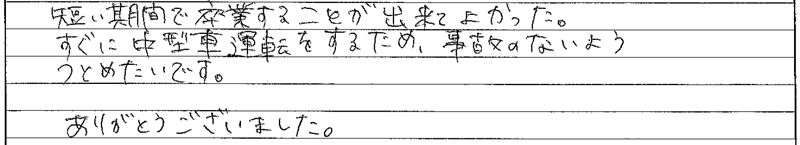 短い期間で卒業することが出来てよかった。
すぐに中型車運転をするため、事故のないよう
つとめたいです。
ありがとうございました。